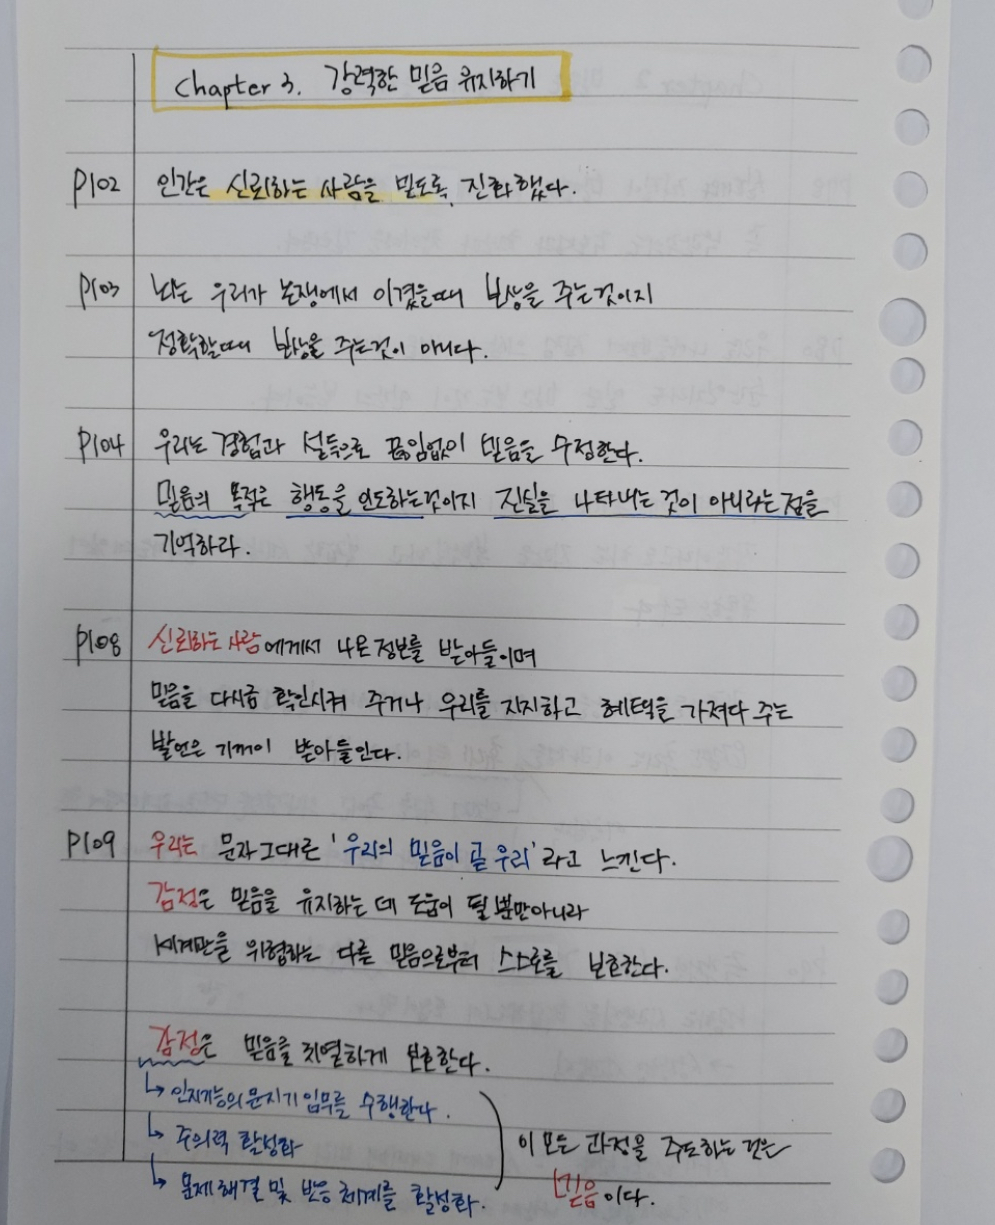 Chapter 3. 강력한 믿음 유지하기
P102 인간은 신뢰하는 사람을 믿도록 진화했다.
P103 뇌는 우리가 논쟁에서 이겼을때 보상을 주는것이지
정확할때 보상을 주는것이 아니다.
P104 우리는 경험과 설득으로 끊임없이 믿음을 수정한다.
믿음의 목적은 행동을 인도하는것이지 진실을 나타내는 것이 아니라는 점을
기억하라.
P108 신뢰하는 사람에게서 나온 정보를 받아들이며
믿음을 다시금 확인시켜 주거나 우리를 지지하고 혜택을 가져다 주는
발언은 기꺼이 받아들인다.
P109 우리는 문자그대로 '우리의 믿음이 곧 우리'라고 느낀다.
감정은 믿음을 유지하는 데 도움이 될 뿐만아니라
세계관을 위협하는 다른 믿음으로부터 스스로를 보호한다.
감정은 믿음을 치열하게 보호한다.
↳ 인지기능의 문지기 임무를 수행한다.
↳ 주의력 활성화
↳ 문제해결 및 반응 체계를 활성화.
이 모든 과정을 주도하는 것은
믿음이다.